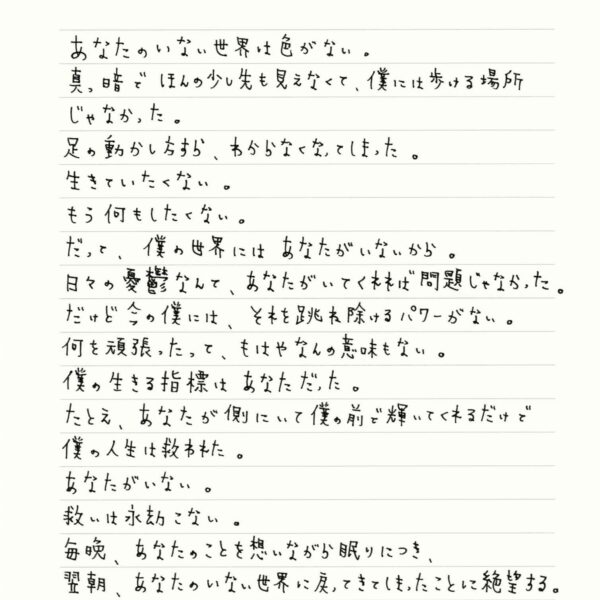 あなたのいない世界は色がない。
真っ暗で ほんの少し先も見えなくて、僕には歩ける場所
じゃなかった。
足の動かし方すら、わからなくなってしまった。
生きていたくない。
もう何もしたくない。
だって、僕の世界には あなたがいないから。
日々の憂鬱なんて、あなたがいてくれれば問題じゃなかった。
だけど今の僕には、それを跳ね除けるパワーがない。
何を頑張ったって、もはやなんの意味もない。
僕の生きる指標は あなただった。
たとえ、あなたが側にいて僕の前で輝いてくれるだけで
僕の人生は救われた。
あなたがいない。
救いは永劫こない。
毎晩、あなたのことを想いながら眠りにつき、
翌朝、あなたのいない世界に戻ってきてしまったことに絶望する。